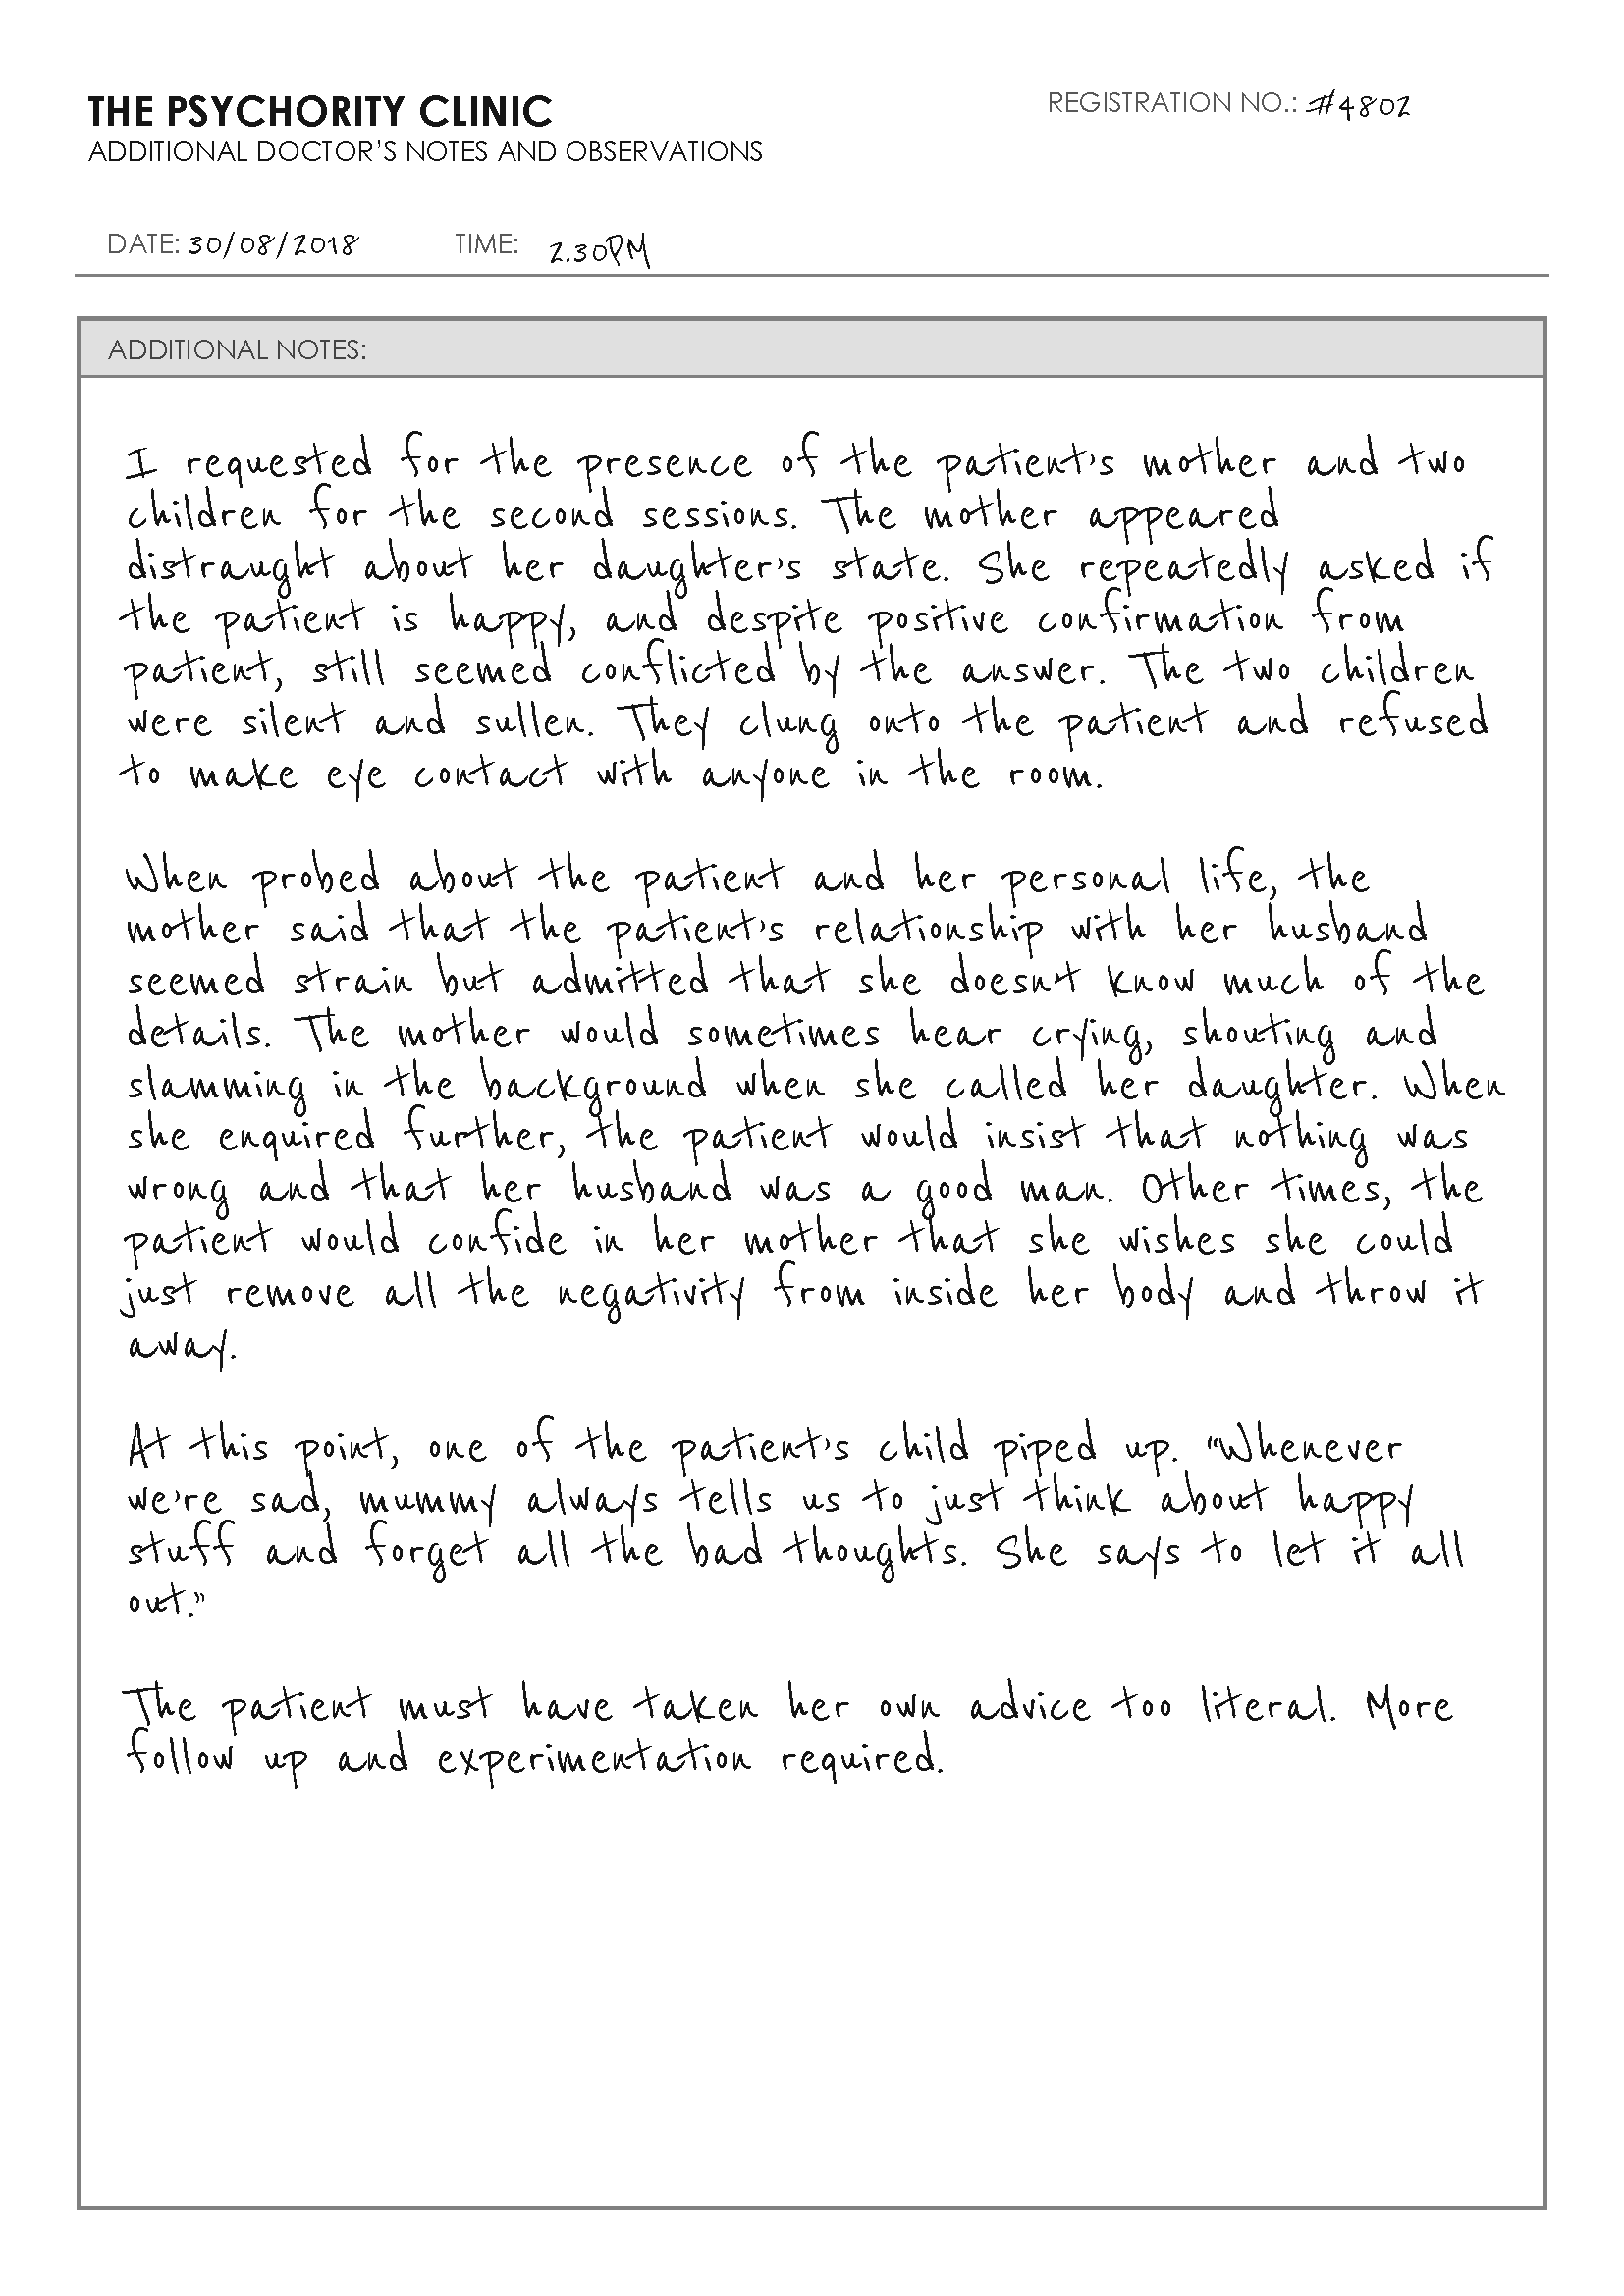 THE PSYCHORITY CLINIC
REGISTRATION NO.: #4802
ADDITIONAL DOCTOR'S NOTES AND OBSERVATIONS
DATE: 30/08/2018 TIME: 2.30PM
ADDITIONAL NOTES:
I requested for the presence of the patient's mother and two
children for the second sessions. The mother appeared
distraught about her daughter's state. She repeatedly asked if
the patient is happy, and despite positive confirmation from
patient, still seemed conflicted by the answer. The two children
were silent and sullen. They clung onto the patient and refused
to make eye contact with anyone in the room.
When probed about the patient and her personal life, the
mother said that the patient's relationship with her husband
seemed strain but admitted that she doesn't know much of the
details. The mother would sometimes hear crying, shouting and
slamming in the background when she called her daughter. When
she enquired further, the patient would insist that nothing was
wrong and that her husband was a good man. Other times, the
patient would confide in her mother that she wishes she could
just remove all the negativity from inside her body and throw it
away.
At this point, one of the patient's child piped up. "Whenever
we're sad, mummy always tells us to just think about happy
stuff and forget all the bad thoughts. She says to let it all
out."
The patient must have taken her own advice too literal. More
follow up and experimentation required.